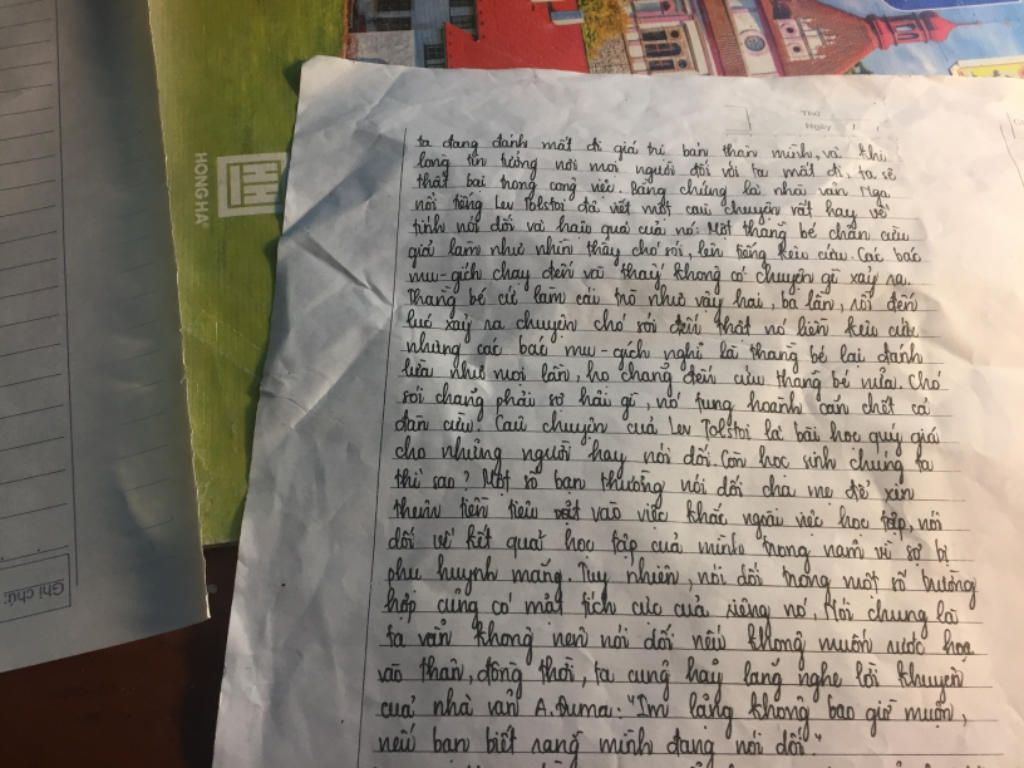 Thứ
Ngày / /
ta đang đánh mất đi giá trị bản thân mình, và khi
lòng tin tưởng nơi mọi người đối với ta mất đi, ta sẽ
thất bại trong công việc. Bằng chứng là nhà văn Nga
nổi tiếng Lev Tolstoi đã viết một câu chuyện rất hay về
tính nói dối và hậu quả của nó: Một thằng bé chăn cừu
giả làm như nhìn thấy chó sói, lên tiếng kêu cứu. Các bác
mu-gích chạy đến và thấy không có chuyện gì xảy ra.
Thằng bé cứ làm cái trò như vậy hai, ba lần, rồi đến
lúc xảy ra chuyện chó sói đến thật nó liền kêu cứu
nhưng các bác mu-gích nghĩ là thằng bé lại đánh
lừa như mọi lần, họ chẳng đến cứu thằng bé nữa. Chó
sói chẳng phải sợ hãi gì, nó tung hoành cắn chết cả
đàn cừu! Câu chuyện của Lev Tolstoi là bài học quý giá
cho những người hay nói dối. Còn học sinh chúng ta
thì sao? Một số bạn thường nói dối cha mẹ để xin
thêm tiền tiêu vặt vào việc khác ngoài việc học tập, nói
dối về kết quả học tập của mình trong năm vì sợ bị
phụ huynh mắng. Tuy nhiên, nói dối trong một số trường
hợp cũng có mặt tích cực của riêng nó. Nói chung là
ta vẫn không nên nói dối nếu không muốn rước họa
vào thân, đồng thời, ta cũng hãy lắng nghe lời khuyên
của nhà văn A.Duma: "Im lặng không bao giờ muộn,
nếu bạn biết rằng mình đang nói dối."
HONG HA
Ghi chú: